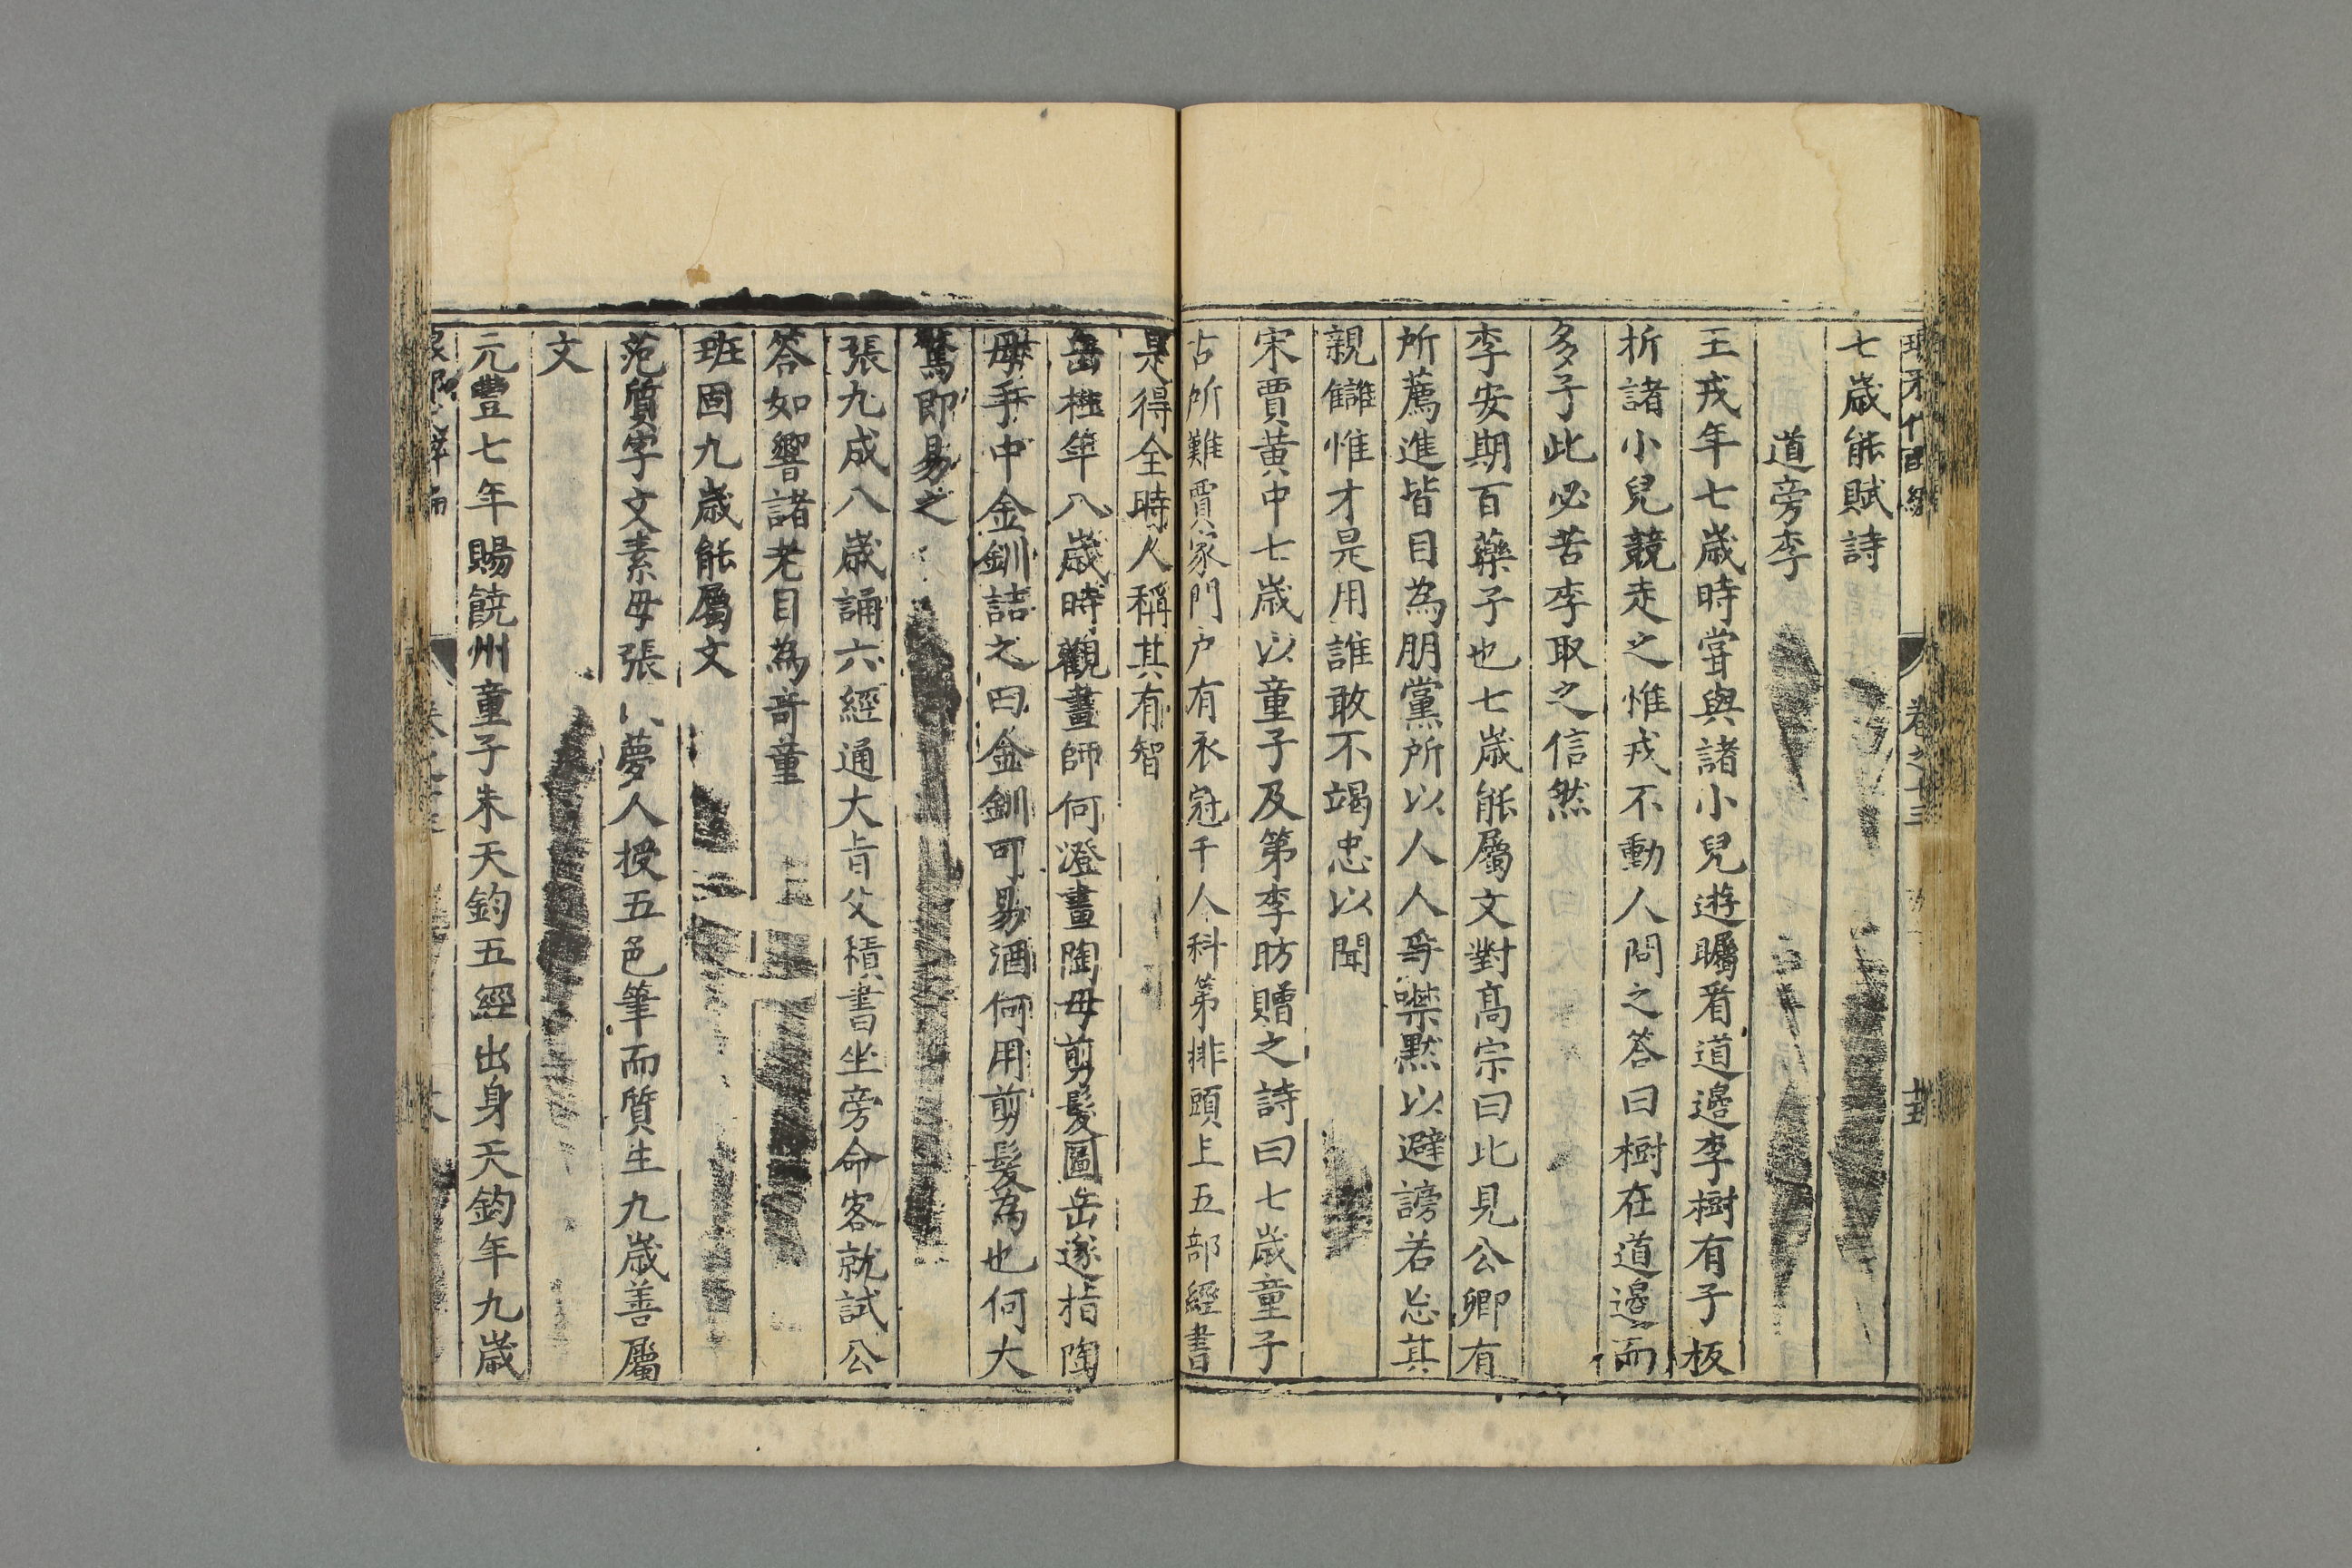 卷之十三
七歲能賦詩
道旁李
王戎年七歲時嘗與諸小兒遊矚看道邊李樹有子扳
折諸小兒競走之惟戎不動人問之答曰樹在道邊而
多子此必苦李取之信然
李安期百藥子也七歲能屬文對高宗曰比見公卿有
所薦進皆目為朋黨所以人人爭噤默以避謗若忘其
親讎惟才是用誰敢不竭忠以聞
宋賈黃中七歲以童子及第李昉贈之詩曰七歲童子
古所難賈家門户有衣冠千人科第排頭上五部經書
是得全時人稱其有智
岳柱年八歲時觀畫師何澄畫陶母剪髮圖岳遂指陶
母手中金釧詰之曰金釧可易酒何用剪髮為也何大
驚即易之
張九成八歲誦六經通大旨父積書坐旁命客就試公
答如響諸老目為奇童
班固九歲能屬文
范質字文素母張 夢人授五色筆而質生九歲善屬
文
元豐七年賜饒州童子朱天鈞五經出身天鈞年九歲